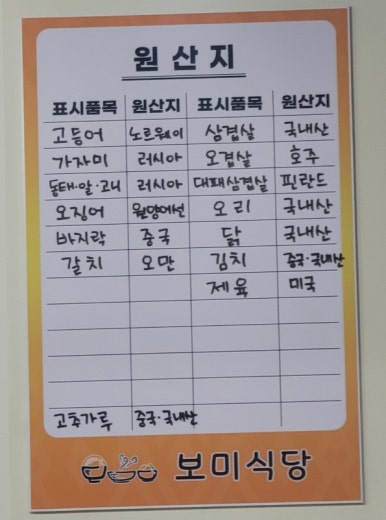 원산지
표시품목 원산지 표시품목 원산지
고등어 노르웨이 삼겹살 국내산
가자미 러시아 오겹살 호주
동태·알·고니 러시아 대패삼겹살 핀란드
오징어 원양어선 오리 국내산
바지락 중국 닭 국내산
갈치 오만 김치 중국·국내산
제육 미국
고추가루 중국·국내산
보미식당